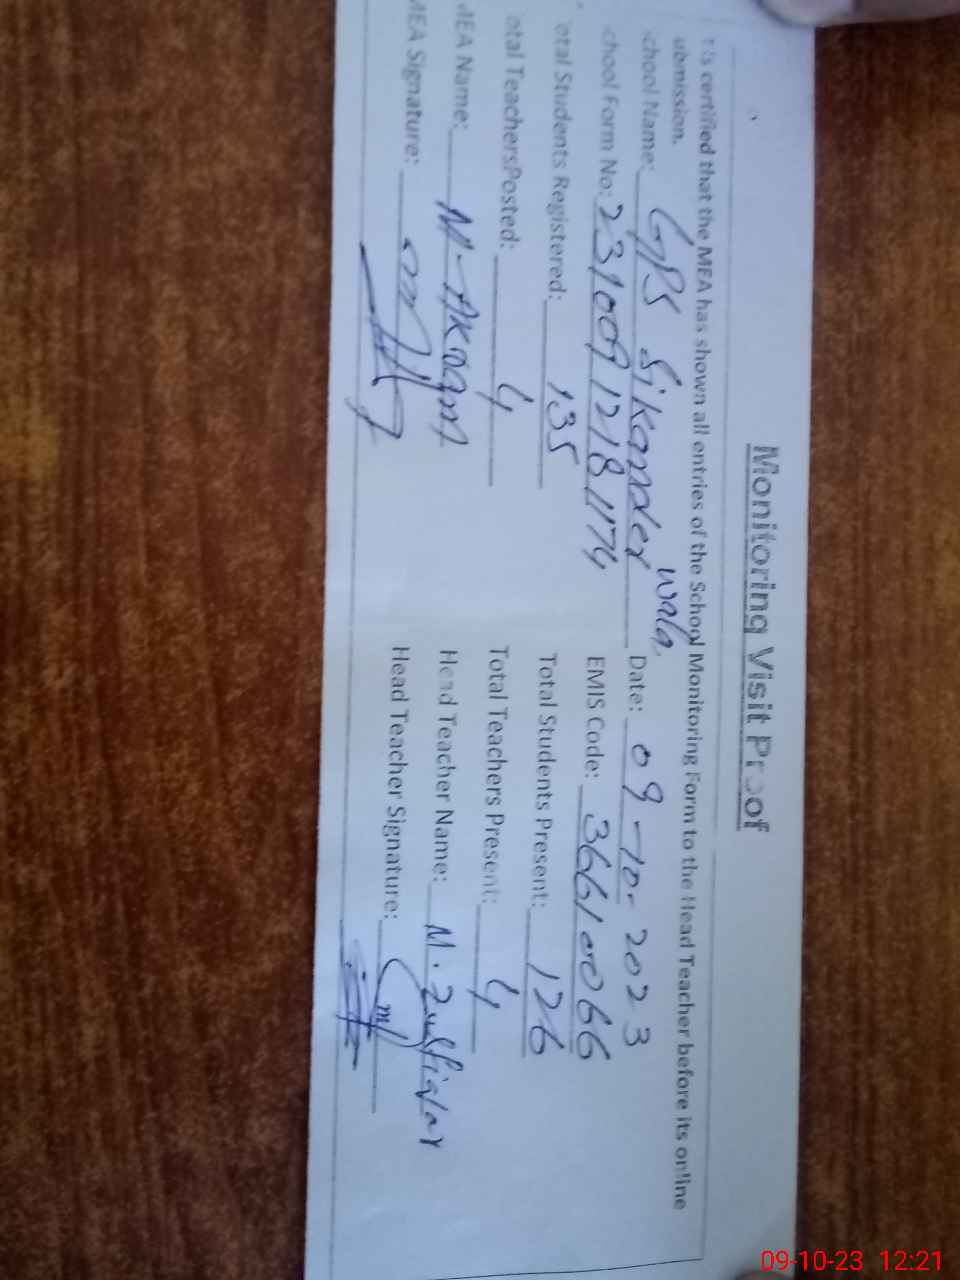 Monitoring Visit Proof
is certified that the MEA has shown all entries of the School Monitoring Form to the Head Teacher before its online
ubmission.
chool Name: GPS Sikander wala Date: 09-10-2023
chool Form No: 23100912181174 EMIS Code: 36610066
otal Students Registered: 135 Total Students Present: 126
otal TeachersPosted: 4 Total Teachers Present: 4
MEA Name: M-Akram Head Teacher Name: M. Zulfiqar
MEA Signature: Head Teacher Signature:
09-10-23 12:21